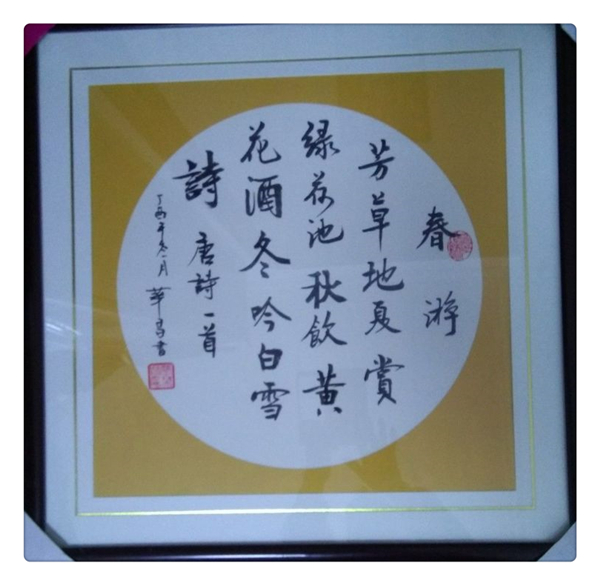 春游
芳草地夏賞
绿荷池秋飲黄
花酒冬吟白雪
詩唐詩一首
丁酉年冬月華書